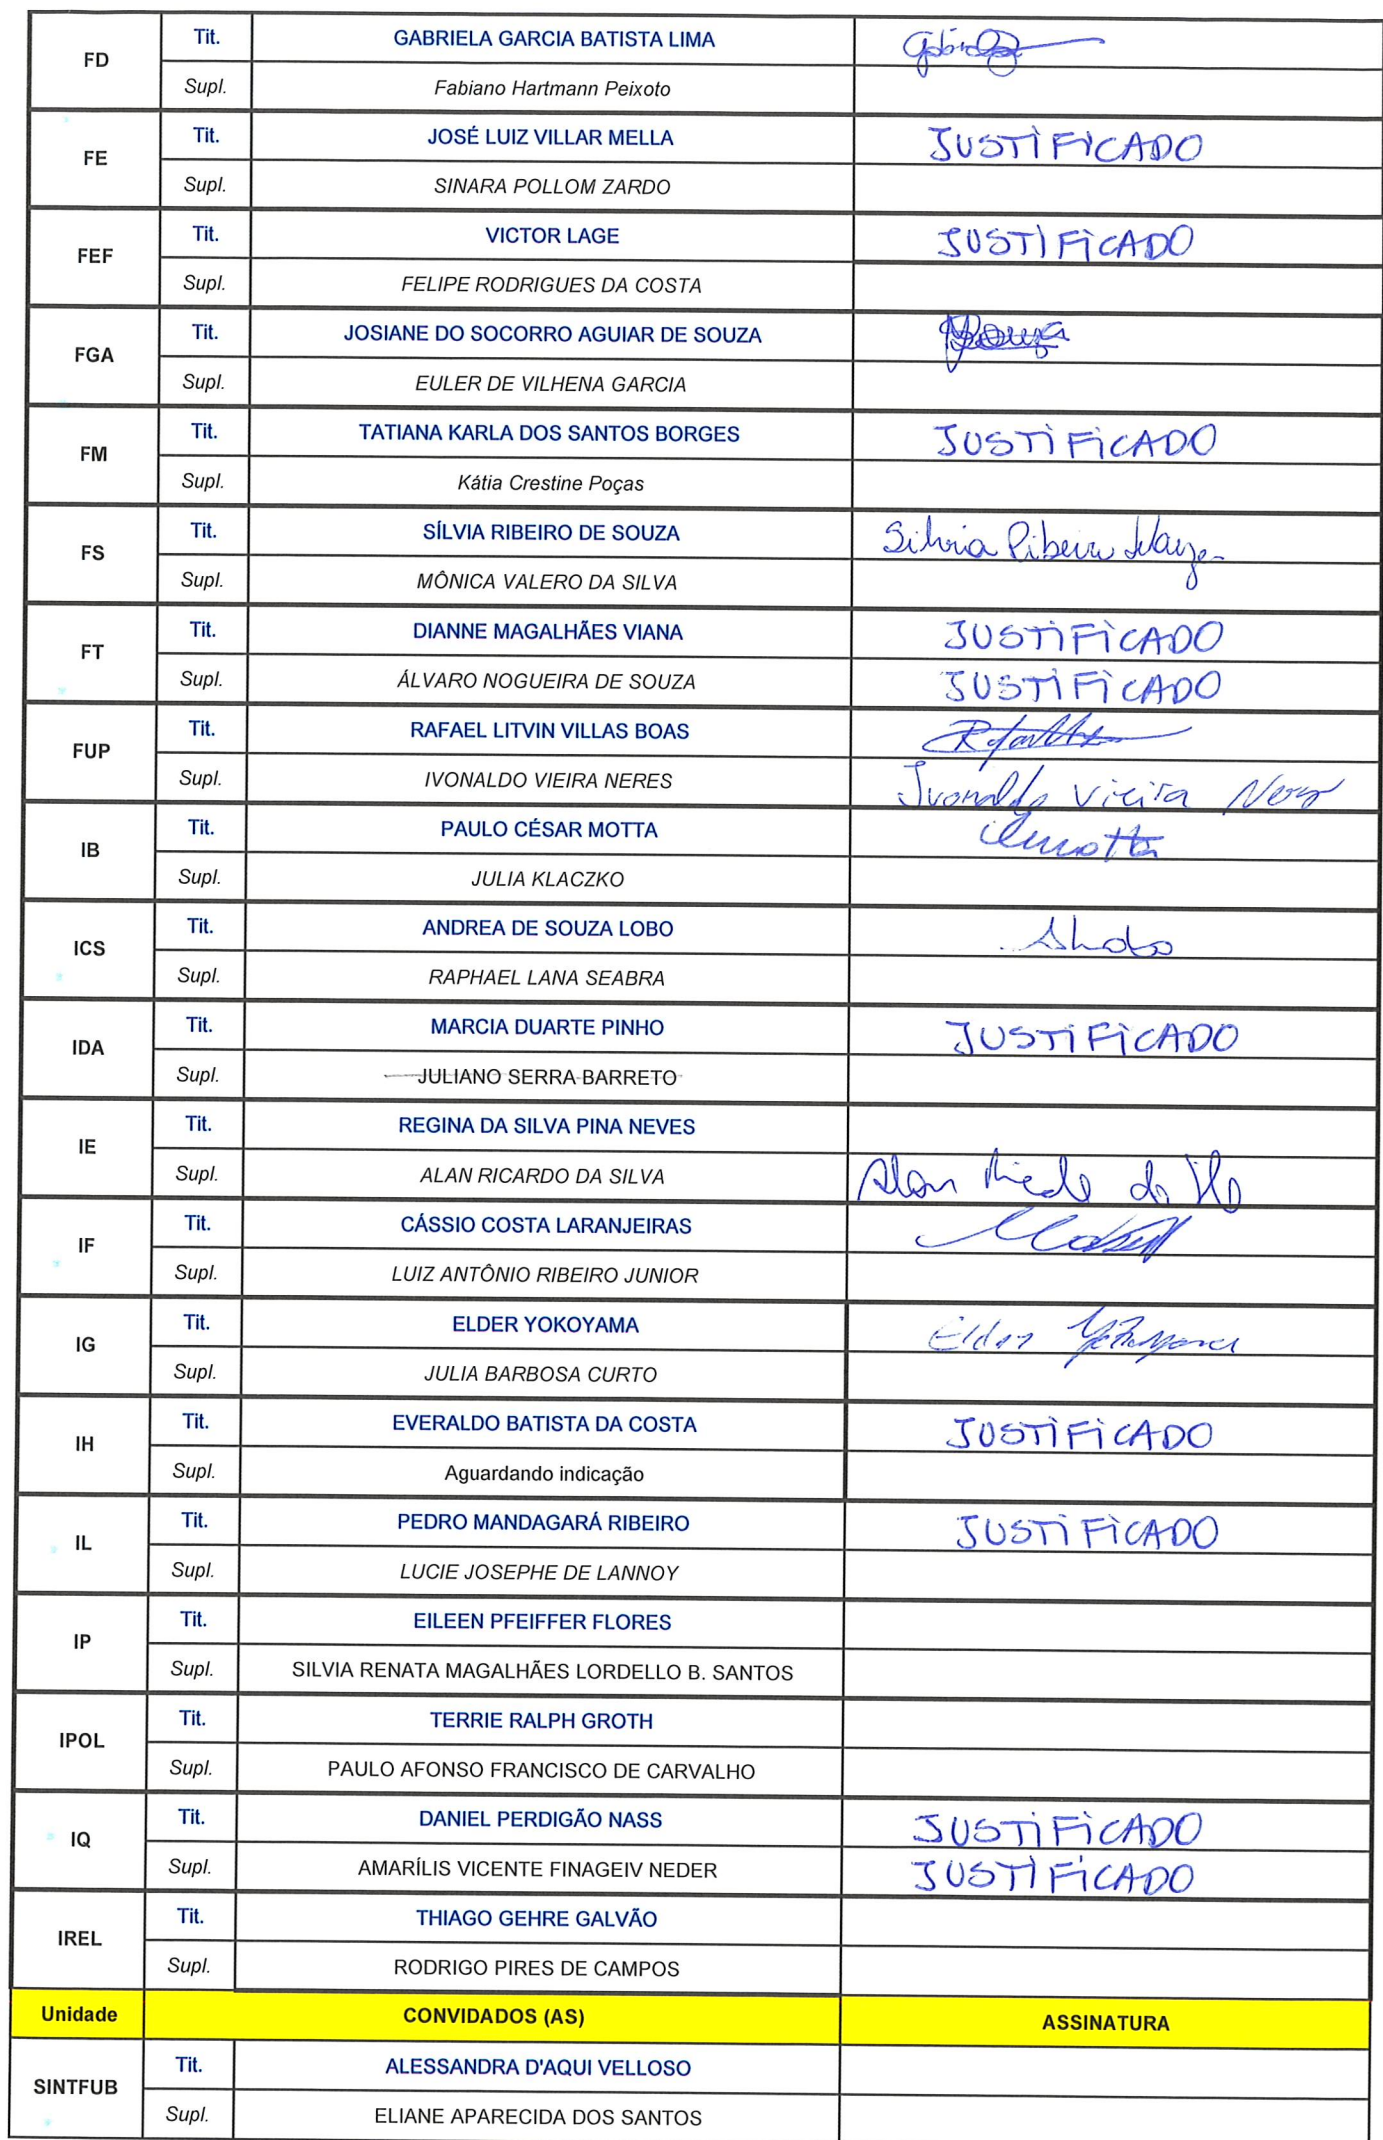 FD Tit. GABRIELA GARCIA BATISTA LIMA
Supl. Fabiano Hartmann Peixoto
FE Tit. JOSÉ LUIZ VILLAR MELLA JUSTIFICADO
Supl. SINARA POLLOM ZARDO
FEF Tit. VICTOR LAGE JUSTIFICADO
Supl. FELIPE RODRIGUES DA COSTA
FGA Tit. JOSIANE DO SOCORRO AGUIAR DE SOUZA Souza
Supl. EULER DE VILHENA GARCIA
FM Tit. TATIANA KARLA DOS SANTOS BORGES JUSTIFICADO
Supl. Kátia Crestine Poças
FS Tit. SÍLVIA RIBEIRO DE SOUZA Silvia Ribeiro de Souza
Supl. MÔNICA VALERO DA SILVA
FT Tit. DIANNE MAGALHÃES VIANA JUSTIFICADO
Supl. ÁLVARO NOGUEIRA DE SOUZA JUSTIFICADO
FUP Tit. RAFAEL LITVIN VILLAS BOAS
Supl. IVONALDO VIEIRA NERES Ivonaldo Vieira Neres
IB Tit. PAULO CÉSAR MOTTA
Supl. JULIA KLACZKO
ICS Tit. ANDREA DE SOUZA LOBO ALobo
Supl. RAPHAEL LANA SEABRA
IDA Tit. MARCIA DUARTE PINHO JUSTIFICADO
Supl. JULIANO SERRA BARRETO
IE Tit. REGINA DA SILVA PINA NEVES
Supl. ALAN RICARDO DA SILVA Alan Ricardo da Silva
IF Tit. CÁSSIO COSTA LARANJEIRAS
Supl. LUIZ ANTÔNIO RIBEIRO JUNIOR
IG Tit. ELDER YOKOYAMA Elder Yokoyama
Supl. JULIA BARBOSA CURTO
IH Tit. EVERALDO BATISTA DA COSTA JUSTIFICADO
Supl. Aguardando indicação
IL Tit. PEDRO MANDAGARÁ RIBEIRO JUSTIFICADO
Supl. LUCIE JOSEPHE DE LANNOY
IP Tit. EILEEN PFEIFFER FLORES
Supl. SILVIA RENATA MAGALHÃES LORDELLO B. SANTOS
IPOL Tit. TERRIE RALPH GROTH
Supl. PAULO AFONSO FRANCISCO DE CARVALHO
IQ Tit. DANIEL PERDIGÃO NASS JUSTIFICADO
Supl. AMARÍLIS VICENTE FINAGEIV NEDER JUSTIFICADO
IREL Tit. THIAGO GEHRE GALVÃO
Supl. RODRIGO PIRES DE CAMPOS
Unidade CONVIDADOS (AS) ASSINATURA
SINTFUB Tit. ALESSANDRA D'AQUI VELLOSO
Supl. ELIANE APARECIDA DOS SANTOS